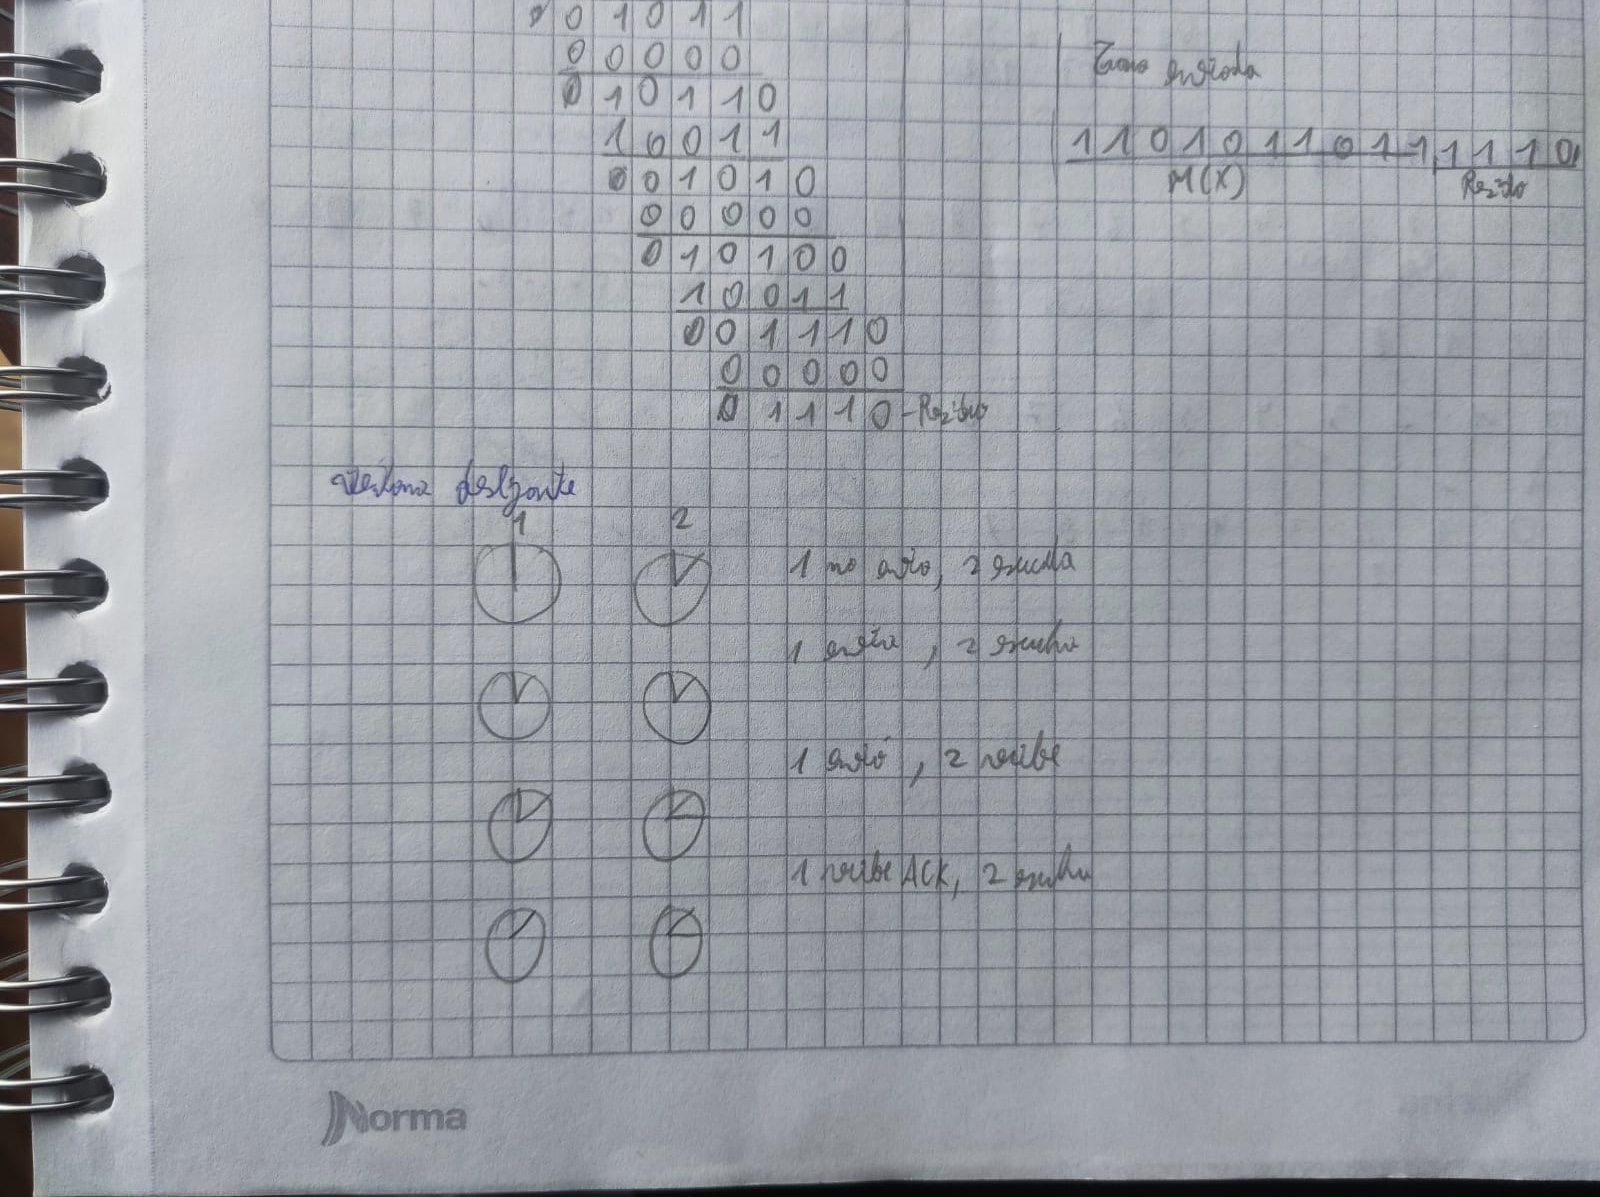 0 0 1 0 1 1
0 0 0 0 0
0 1 0 1 1 0
1 0 0 1 1
0 0 1 0 1 0
0 0 0 0 0
0 1 0 1 0 0
1 0 0 1 1
0 0 1 1 1 0
0 0 0 0 0
0 1 1 1 0 - Residuo
Trama enviada
1 1 0 1 0 1 1 0 1 1 1 1 1 0
M(X) Residuo
Ventana deslizante
1 2
1 no envia, 2 escucha
1 envia, 2 escucha
1 envió, 2 recibe
1 recibe ACK, 2 escucha
Norma